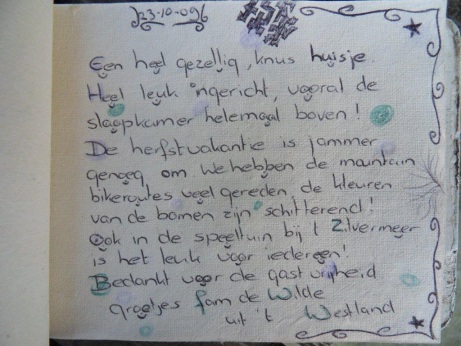 23-10-09
Een heel gezellig, knus huisje.
Heel leuk ingericht, vooral de
slaapkamer helemaal boven!
De herfstvakantie is jammer
genoeg om. We hebben de mountain
bikeroutes veel gereden, de kleuren
van de bomen zijn schitterend!
Ook in de speeltuin bij 't Zilvermeer
is het leuk voor iedereen!
Bedankt voor de gastvrijheid
groetjes fam de Wilde
uit 't Westland